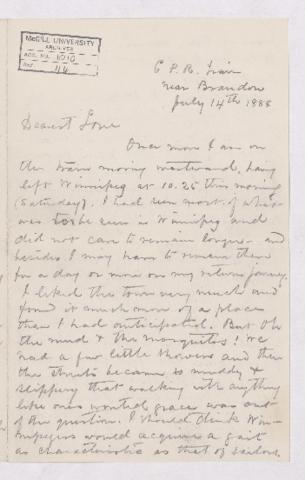 McGILL UNIVERSITY
ARCHIVES
ACC. NO. 1010
REF.
C P. R. Train
near Brandon
July 14th 1888
Dearest Love
Once more I am on
the train moving westward, having
left Winnipeg at 10.25 this morning
(Saturday). I had seen most of what
was to be seen in Winnipeg and
did not care to remain longer - and
besides I may have to remain there
for a day or more on my return journey.
I liked the town very much and
found it much more of a place
than I had anticipated. But Oh
the mud & the mosquitos! We
had a few little showers and then
the streets became so muddy &
slippery that walking with anything
like ones wonted grace was out
of the question. I should think Win-
nipegers would acquire a gait
as characteristic as that of sailors